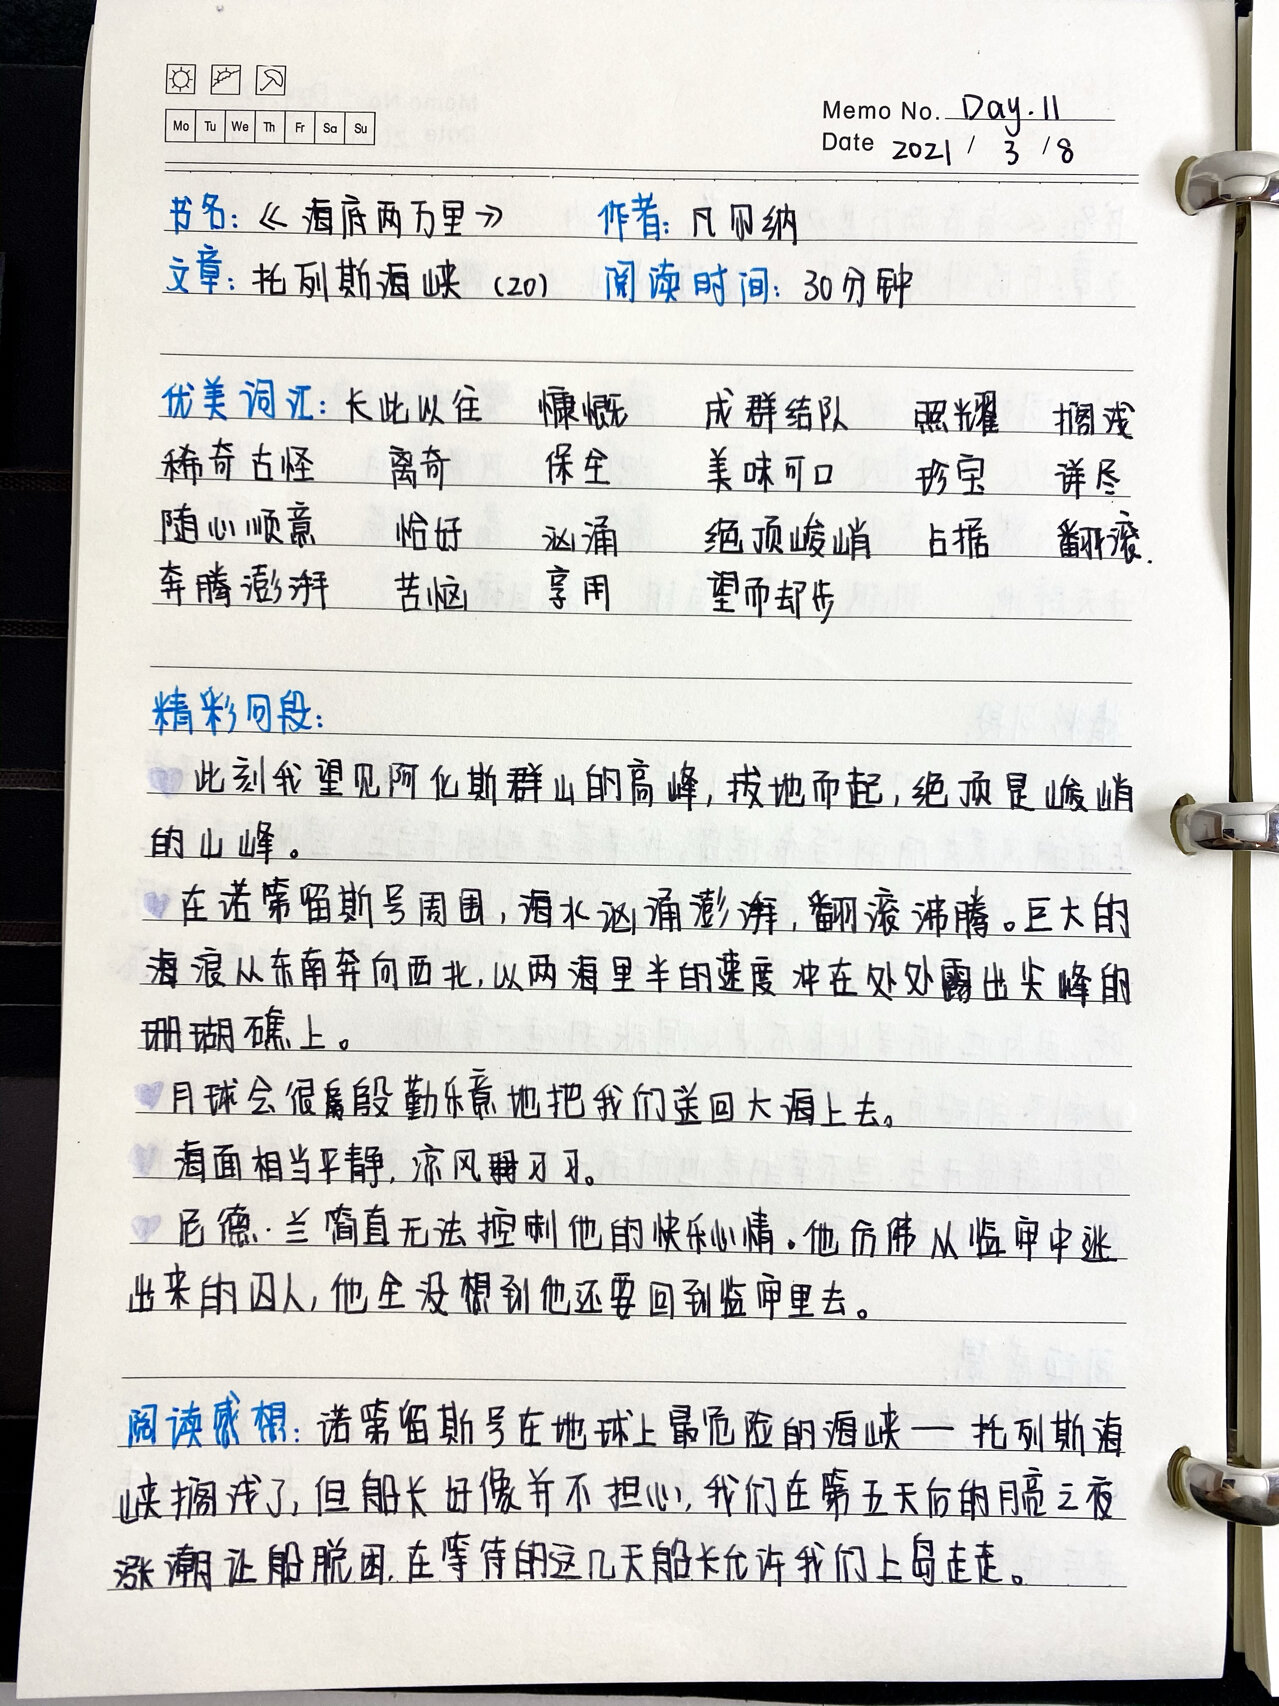 Mo Tu We Th Fr Sa Su
Memo No. Day.11
Date 2021 / 3 / 8
书名:《海底两万里》 作者:凡尔纳
文章:托列斯海峡(20) 阅读时间:30分钟
优美词汇:长此以往 慷慨 成群结队 照耀 搁浅
稀奇古怪 离奇 保全 美味可口 珍宝 详尽
随心顺意 恰好 汹涌 绝顶峻峭 占据 翻滚.
奔腾澎湃 苦恼 享用 望而却步
精彩回段:
此刻我望见阿化斯群山的高峰,拔地而起,绝顶是峻峭
的山峰。
在诺第留斯号周围,海水汹涌澎湃,翻滚沸腾。巨大的
海浪从东南奔向西北,以两海里半的速度冲在处处露出尖峰的
珊瑚礁上。
月球会很殷勤乐意地把我们送回大海上去。
海面相当平静,凉风习习。
尼德·兰简直无法控制他的快乐心情。他仿佛从监牢中逃
出来的囚人,他全没想到他还要回到监牢里去。
阅读感想:诺第留斯号在地球上最危险的海峡一托列斯海
峡搁浅了,但船长好像并不担心,我们在第五天后的月亮之夜
涨潮让船脱困.在等待的这几天船长允许我们上岛走走。